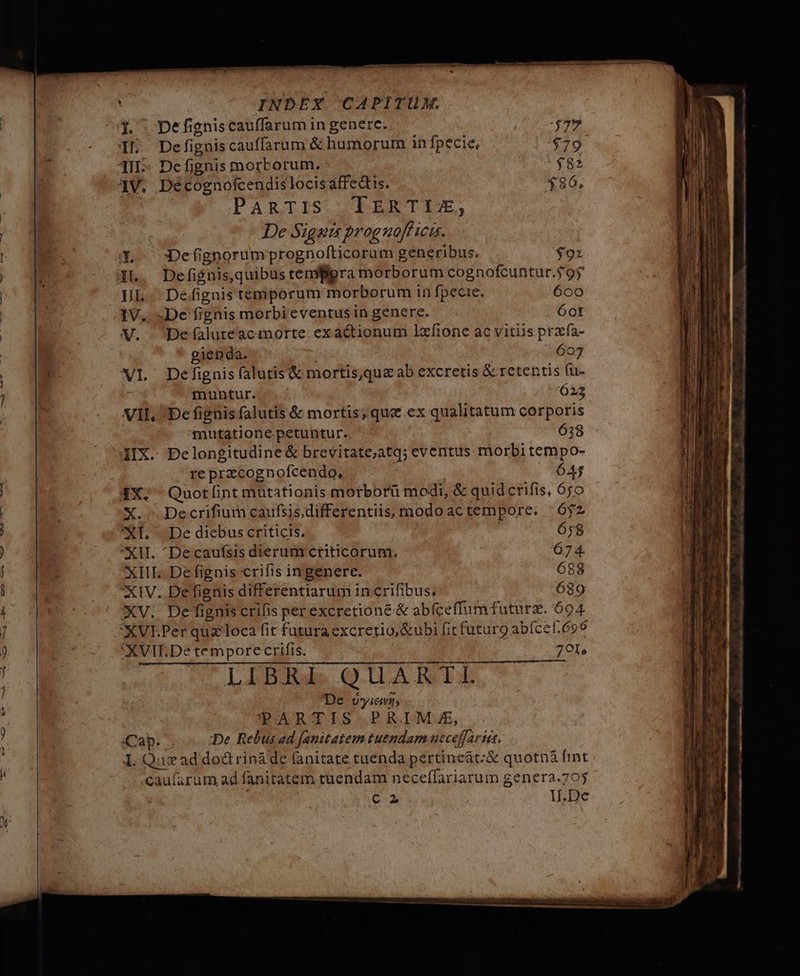 INDEX CAPITUM.
I. De signis caussarum in genere. 577
II. De signis caussarum & humorum in specie, 579
III. De signis morborum. 582
IV. De cognoscendis locis affectis. 586.
PARTIS TERTIÆ,
De Signis prognosticis.
I. De signorum prognosticorum generibus. 592
II. De signis, quibus tempora morborum cognoscuntur. 595
III. De signis temporum morborum in specie. 600
IV. De signis morbi eventus in genere. 601
V. De salute ac morte ex actionum læsione ac vitiis præsa-
gienda. 607
VI. De signis salutis & mortis, quæ ab excretis & retentis su-
muntur. 623
VII. De signis salutis & mortis, quæ ex qualitatum corporis
mutatione petuntur. 638
IIX. De longitudine & brevitate, atq; eventus morbi tempo-
re præcognoscendo, 645
IX. Quot sint mutationis morborū modi, & quid crisis, 650
X. De crisium caussis, differentiis, modo ac tempore. 652
XI. De diebus criticis. 658
XII. De caussis dierum criticorum. 674
XIII. De signis crisis in genere. 688
XIV. De signis differentiarum in crisibus. 689
XV. De signis crisis per excretionē & abscessum futuræ. 694
XVI. Per quæ loca fit futura excretio, & ubi fit futurg abscef. 696
XVII. De tempore crisis. 701.
LIBRI QUARTI.
De ὑγιεινῇ,
PARTIS PRIMÆ,
Cap. De Rebus ad sanitatem tuendam necessariis.
I. Quæ ad doctrinā de sanitate tuenda pertineāt: & quotnā sint
causarum ad sanitatem tuendam necessariarum genera. 705
c 2 II. De